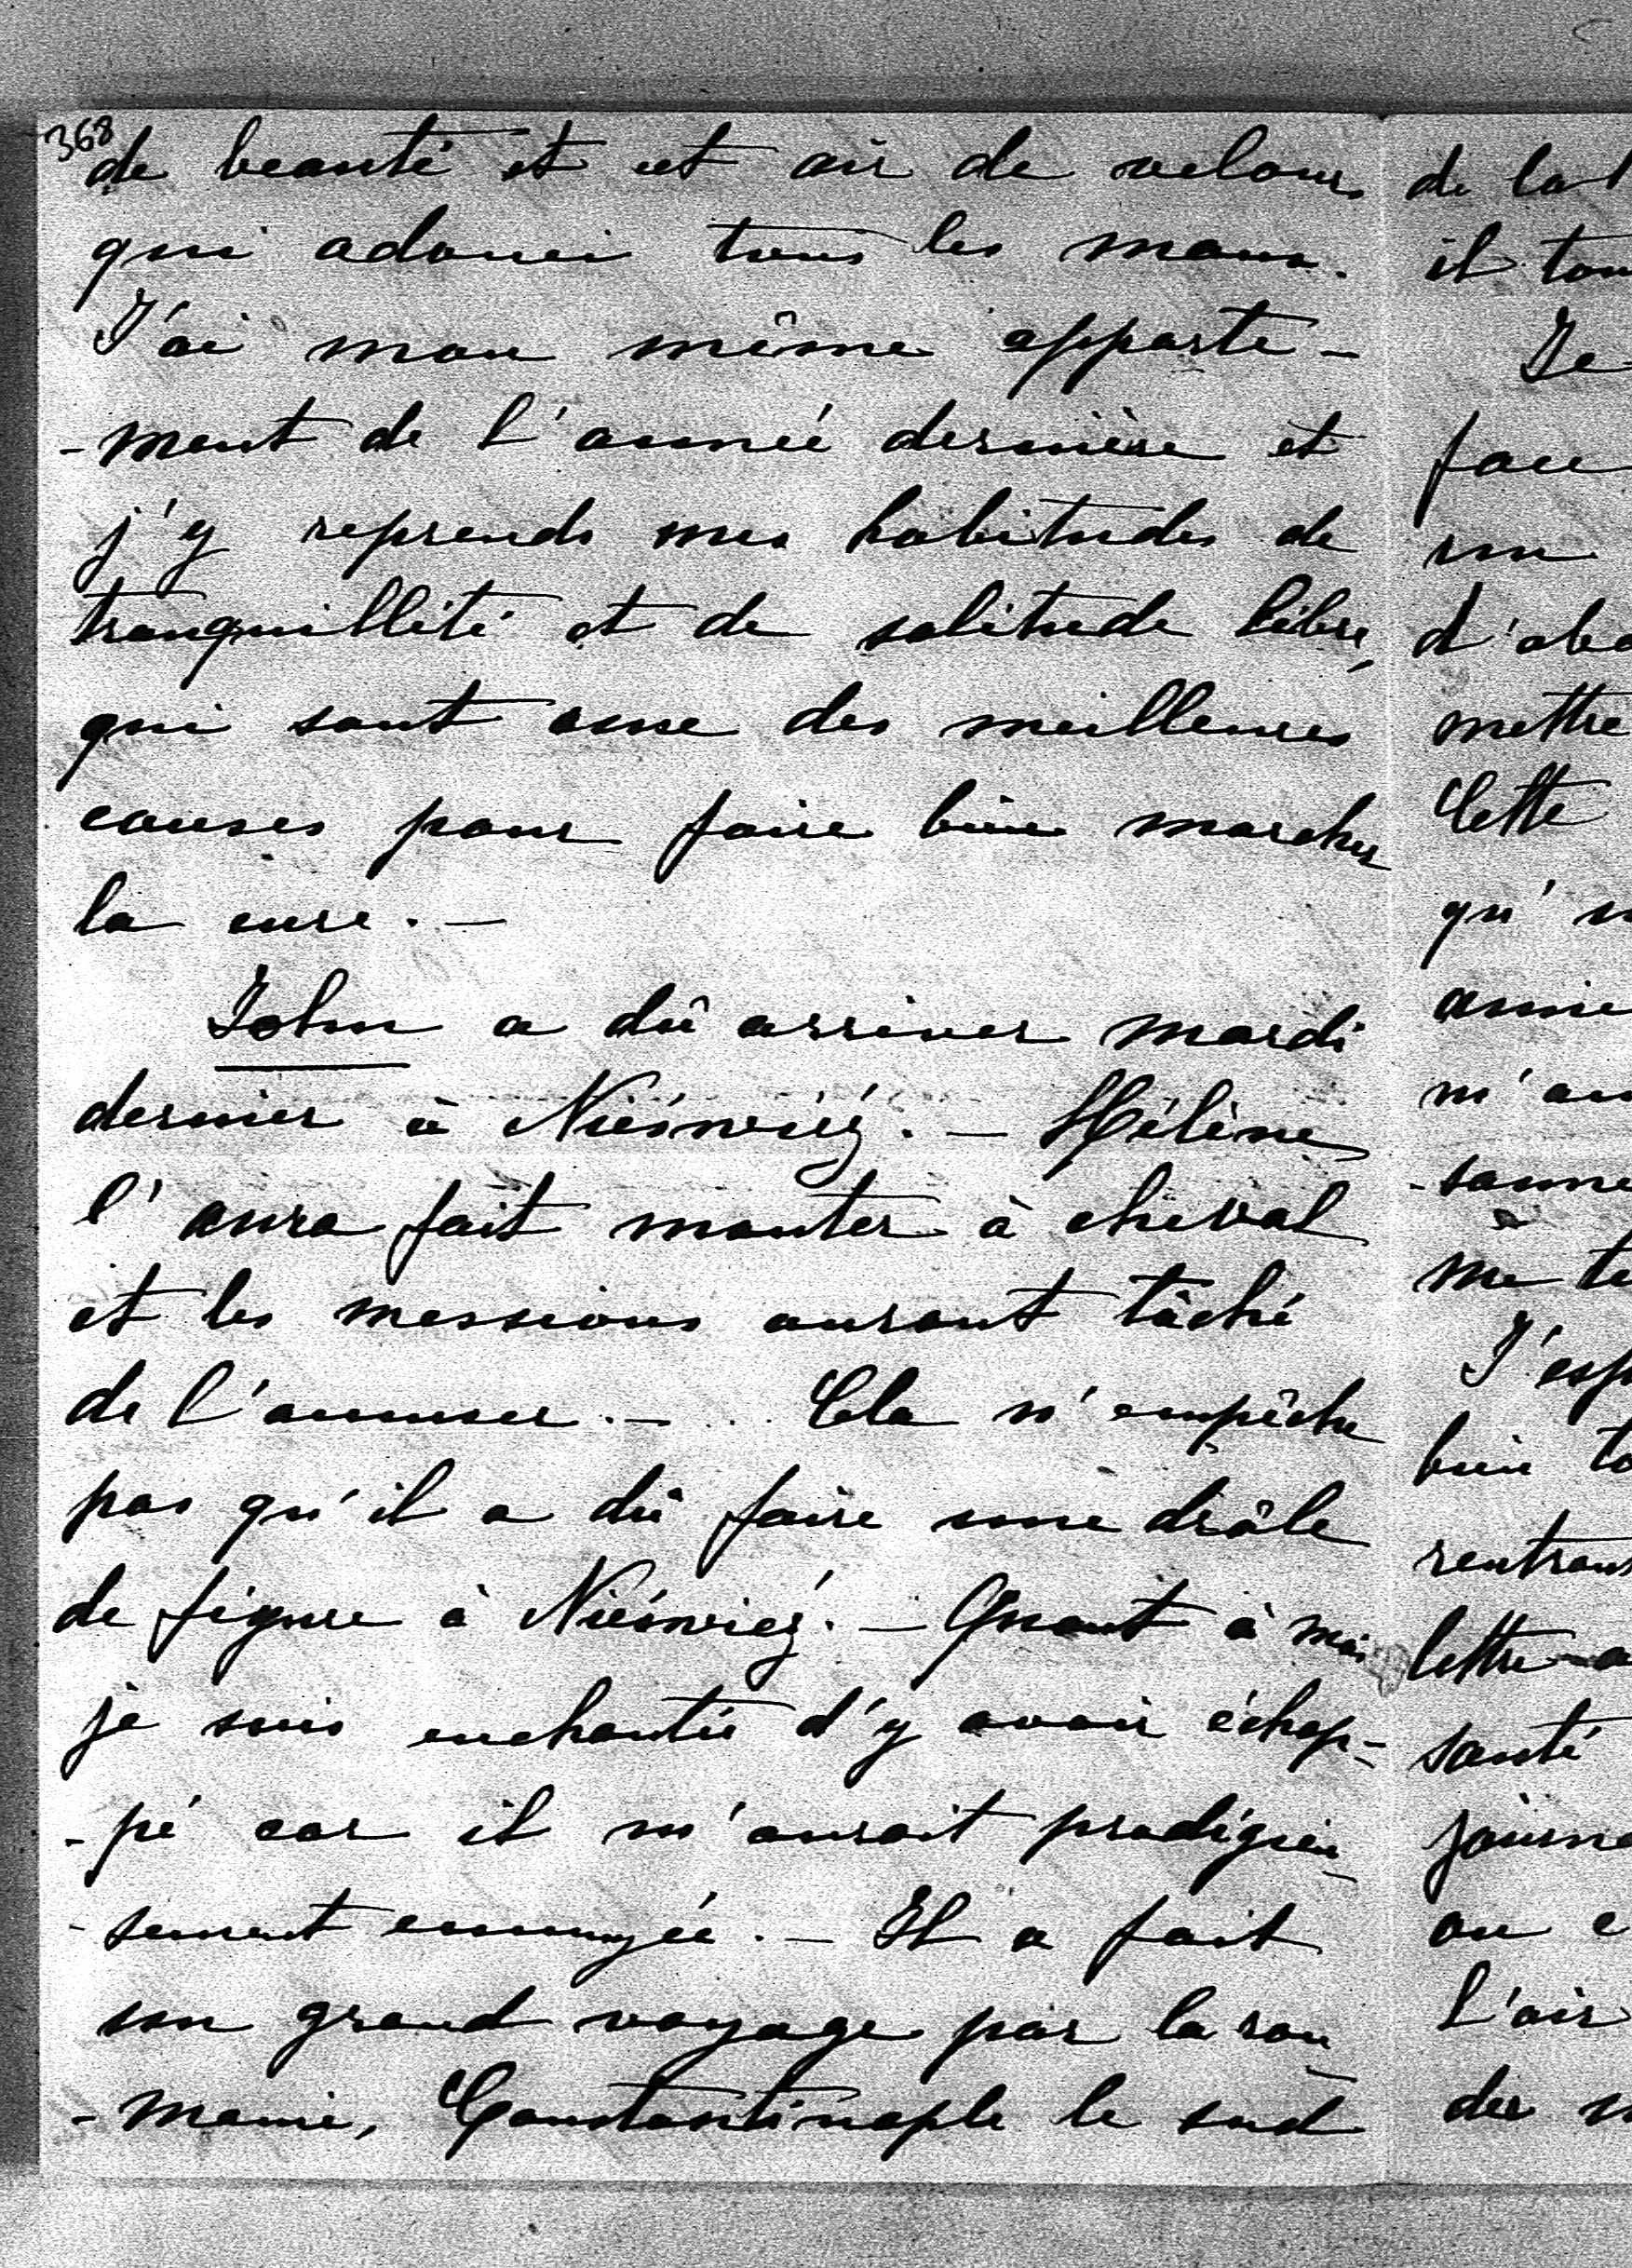 368
de beauté et cet air de velours
qui adouci tous les maux.
J'ai mon même apparte-
-ment de l'année dernière et
j'y reprends mes habitudes de
tranquillité et de solitude libre,
qui sont une des meilleures
causes pour faire bien marcher
la cure. —
John a dû arriver mardi
dernier à Nieśwież. — Hélène
l'aura fait monter à cheval
et les messieurs auront tâché
de l'amuser. — .. Cela n'empêche
pas qu'il a dû faire une drôle
de figure à Nieśwież. — Quant à moi
je suis enchantée d'y avoir échap-
-pé car il m'aurait prodigieu-
-sement ennuyée. — Il a fait
un grand voyage par la rou-
-manie, Constantinople le sud
de la
il tou
Je
face
un
d'abo
mettre
Cette
qu'
amie
m'au
-sonne
me te
J'esp
bien to
rentrant
lettre a
santé
journé
au c
L'air
des